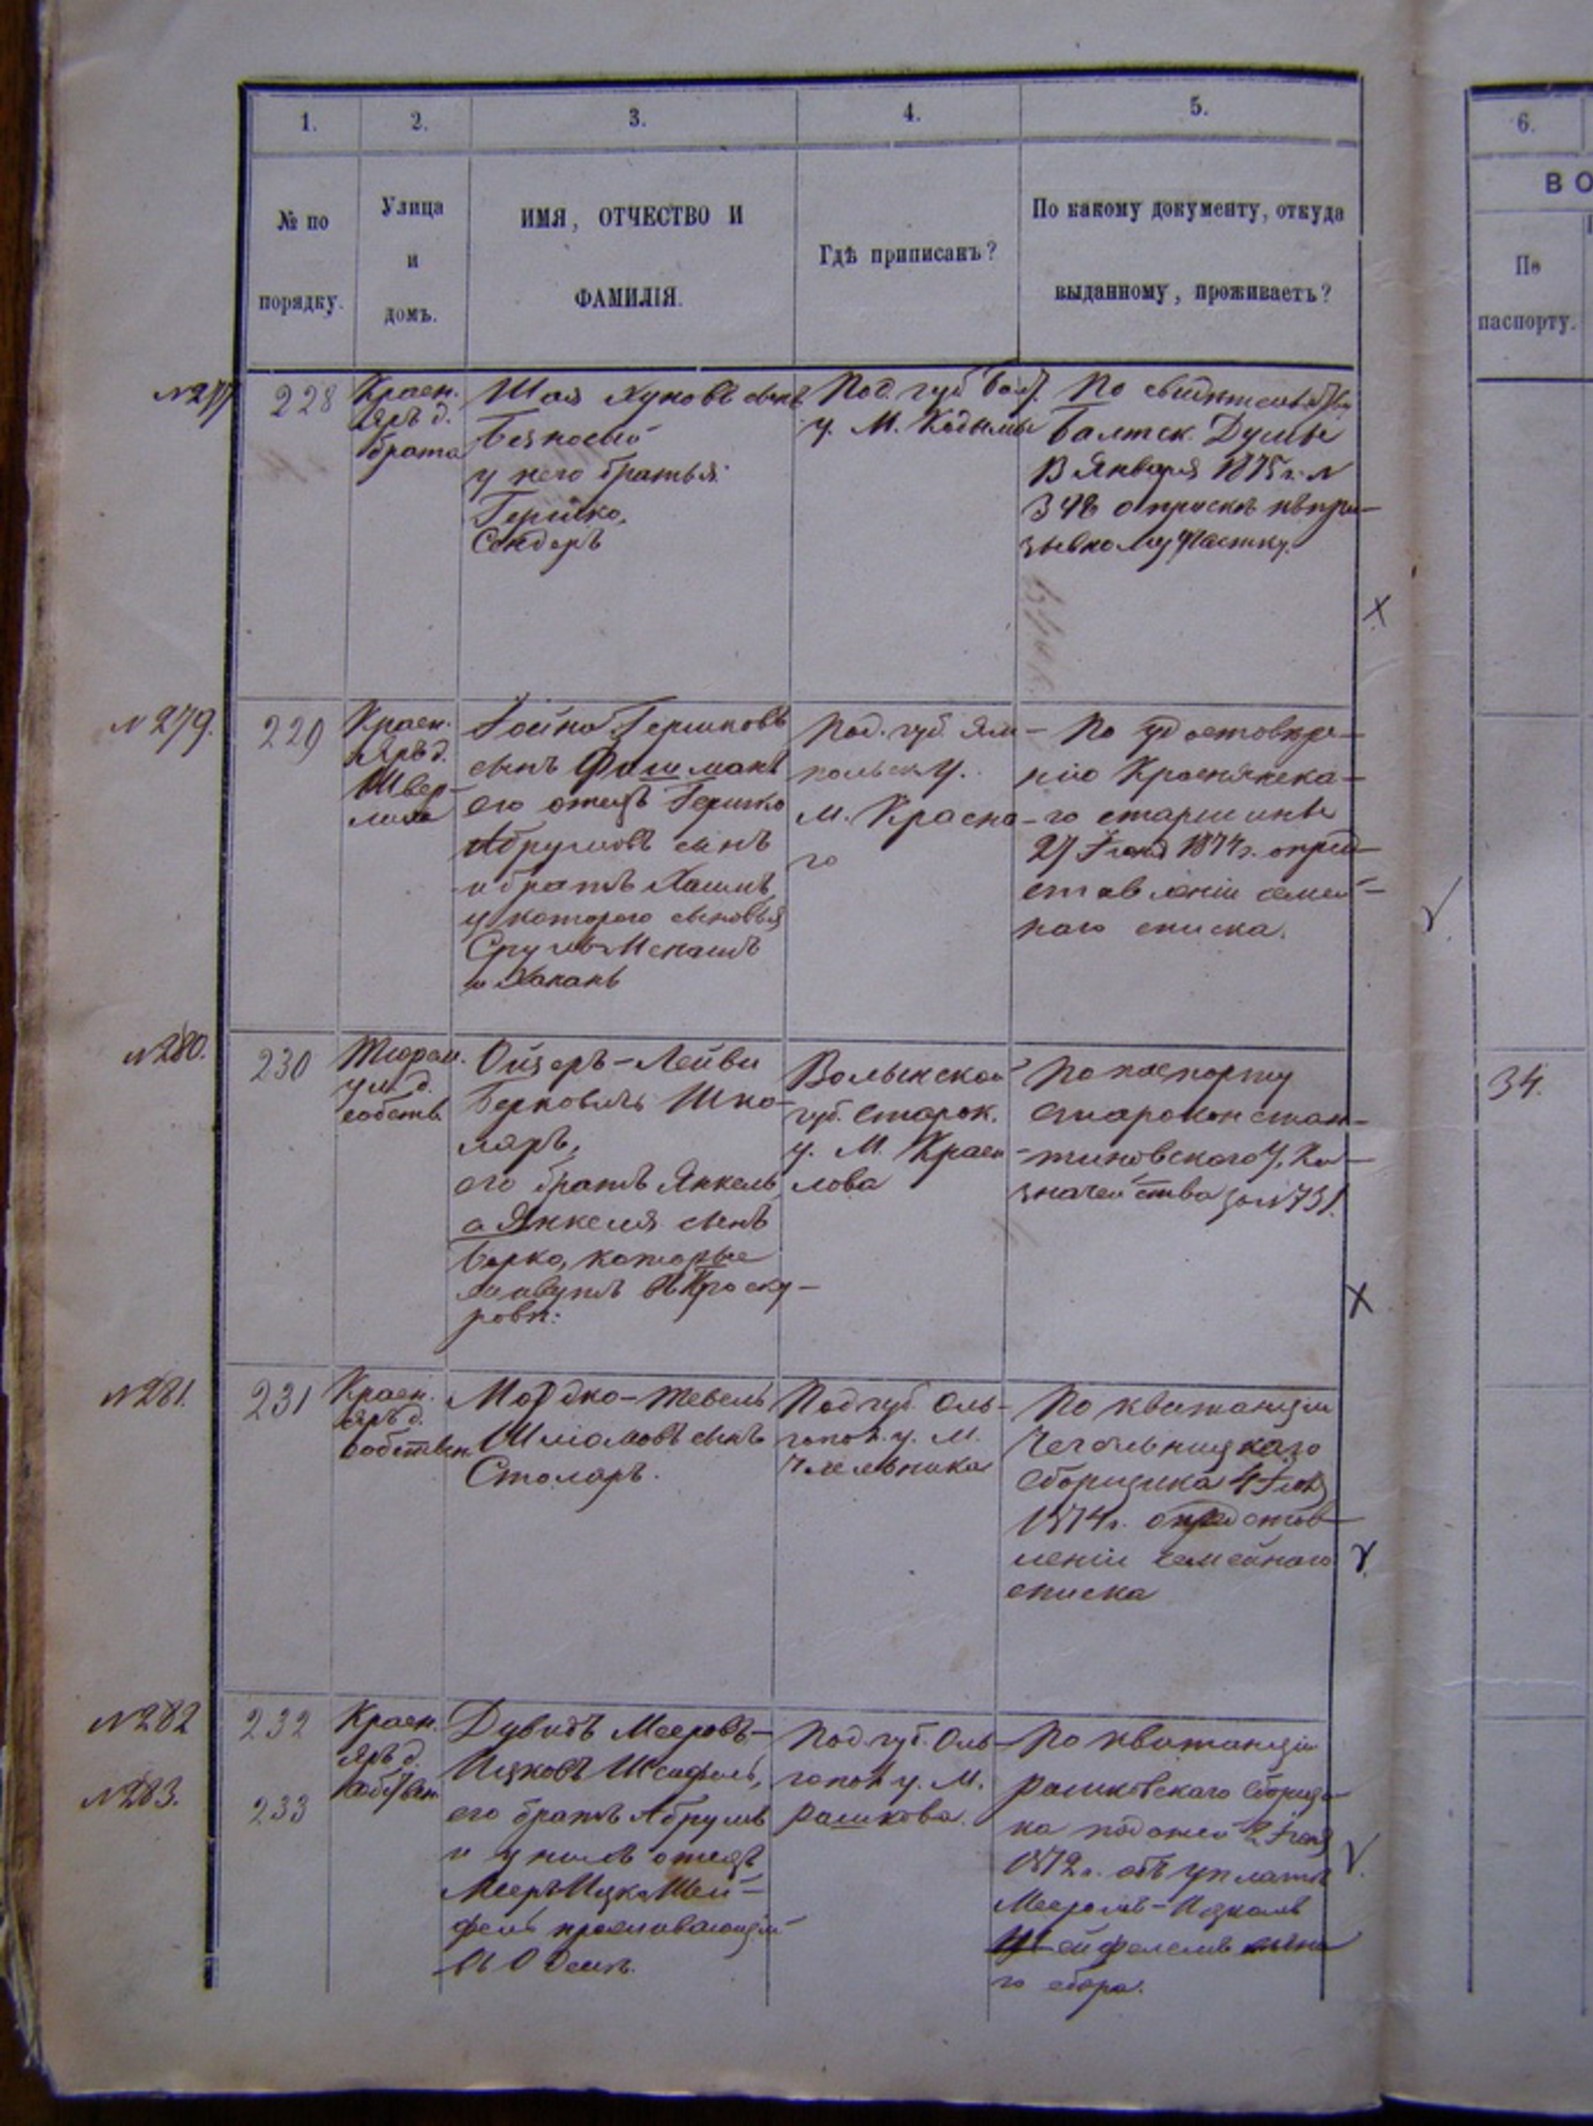 1.
2.
3.
4.
5.
6.
№ по
порядку.
Улица
и
домъ.
ИМЯ, ОТЧЕСТВО И
ФАМИЛІЯ.
Гдѣ приписанъ?
По какому документу, откуда
выданному, проживаетъ?
ВО
По
паспорту.
№277
228
Красн.
яръ д.
брата
Шая Хуновъ сынъ
Безносый
у него братья:
Гершко,
Сендеръ
Под. губ. Балт.
у. М. Кодымы
По свидѣтельству
Балтск. Думы
13 Января 1875 г. №
348 о припискѣ къ при-
зывному участку.
№279.
229
Красн.
яръ д.
Швер-
Іойна Гершковъ
сынъ Фишманъ
его отецъ Гершко
Абрумовъ сынъ
и братъ Хаимъ,
у котораго сыновья
Сруль-Менашъ
и Хананъ
Под. губ. Ям-
польск. у.
М. Красна-
го
По удостовѣре-
нію Краснянска-
го старшины
27 Іюня 1874 г. о пред-
ставленіи семей-
наго списка.
№280.
230
Тюрем.
ул. д.
собств.
Ойзеръ-Лейви
Берковичъ Шко-
ляръ,
его братъ Янкель
а Янкеля сынъ
Берко, которые
живутъ въ Проску-
ровѣ.
Волынской
губ. Старок.
у. М. Красн-
лова
По паспорту
Староконстан-
тиновскаго У. Ка-
значейства за №731.
34.
№281.
231
Красн.
яръ д.
собствен.
Мордко-Тевель
Шліомовъ сынъ
Столяръ.
Под. губ. Оль-
гопол. у. М.
Чечельника
По квитанціи
Чечельницкаго
Сборщика 4 Іюня
1874 г. о представ-
леніи семейнаго
списка
№282
№283.
232
233
Красн.
яръ д.
собствен.
Дувидъ Мееровъ-
Ицковъ Шейфель,
его братъ Абрумъ
и у нихъ отецъ
Мееръ-Ицко Шей-
фель проживающій
въ Одессѣ.
Под. губ. Оль-
гопол. у. М.
Рашкова.
По квитанціи
Рашковскаго Сборщи-
ка податей 2 Іюня
1872 г. объ уплатѣ
Мееромъ-Ицкомъ
Шейфелемъ
го сбора.